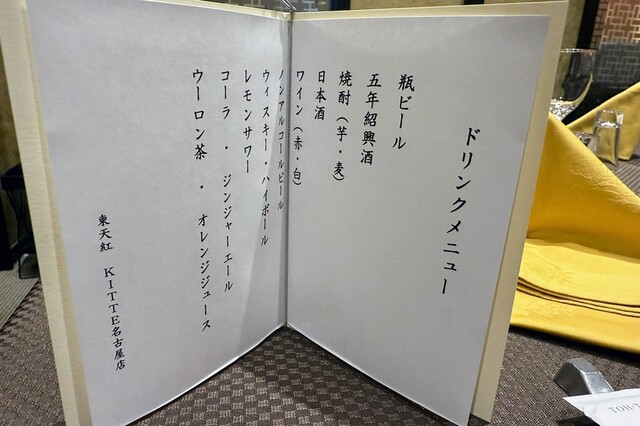 ドリンクメニュー
瓶ビール
五年紹興酒
焼酎(芋・麦)
日本酒
ワイン(赤・白)
ノンアルコールビール
ウィスキー・ハイボール
レモンサワー
コーラ ・ ジンジャーエール
ウーロン茶 ・ オレンジジュース
東天紅 KITTE名古屋店